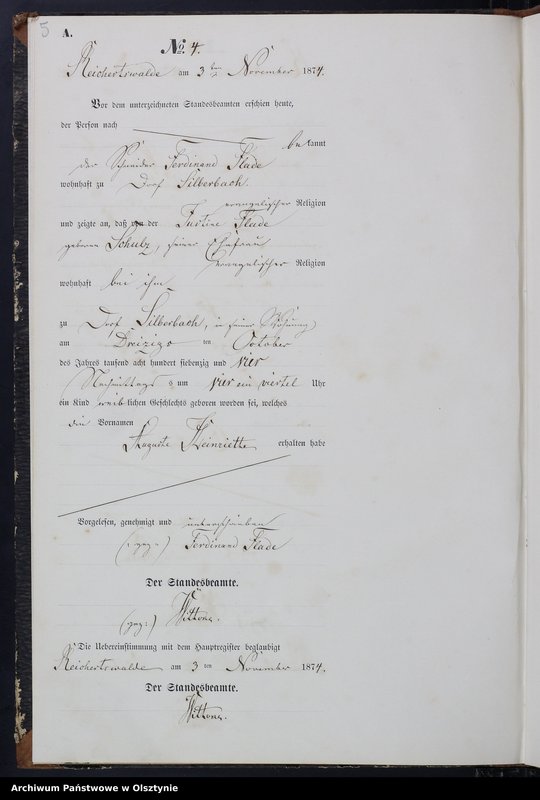 5
A.
No. 4.
Reichertswalde am 3ten November 1874.
Vor dem unterzeichneten Standesbeamten erschien heute,
der Person nach
bekannt
der Schneider Ferdinand Flade
wohnhaft zu Dorf Silberbach
evangelischer Religion
und zeigte an, daß von der Justine Flade
geborene Schulz, seiner Ehefrau
evangelischer Religion
wohnhaft bei ihm
zu Dorf Silberbach, in seiner Wohnung
am Dreizigs ten October
des Jahres tausend acht hundert siebenzig und vier
Nachmittags um vier ein viertel Uhr
ein Kind weiblichen Geschlechts geboren worden sei, welches
die Vornamen
Auguste Heinriette erhalten habe
Vorgelesen, genehmigt und unterschrieben
Ferdinand Flade
Der Standesbeamte.
(gez:) Wittona.
Die Uebereinstimmung mit dem Hauptregister beglaubigt
Reichertswalde am 3 ten November 1874.
Der Standesbeamte.
Wittona.
Archiwum Państwowe w Olsztynie